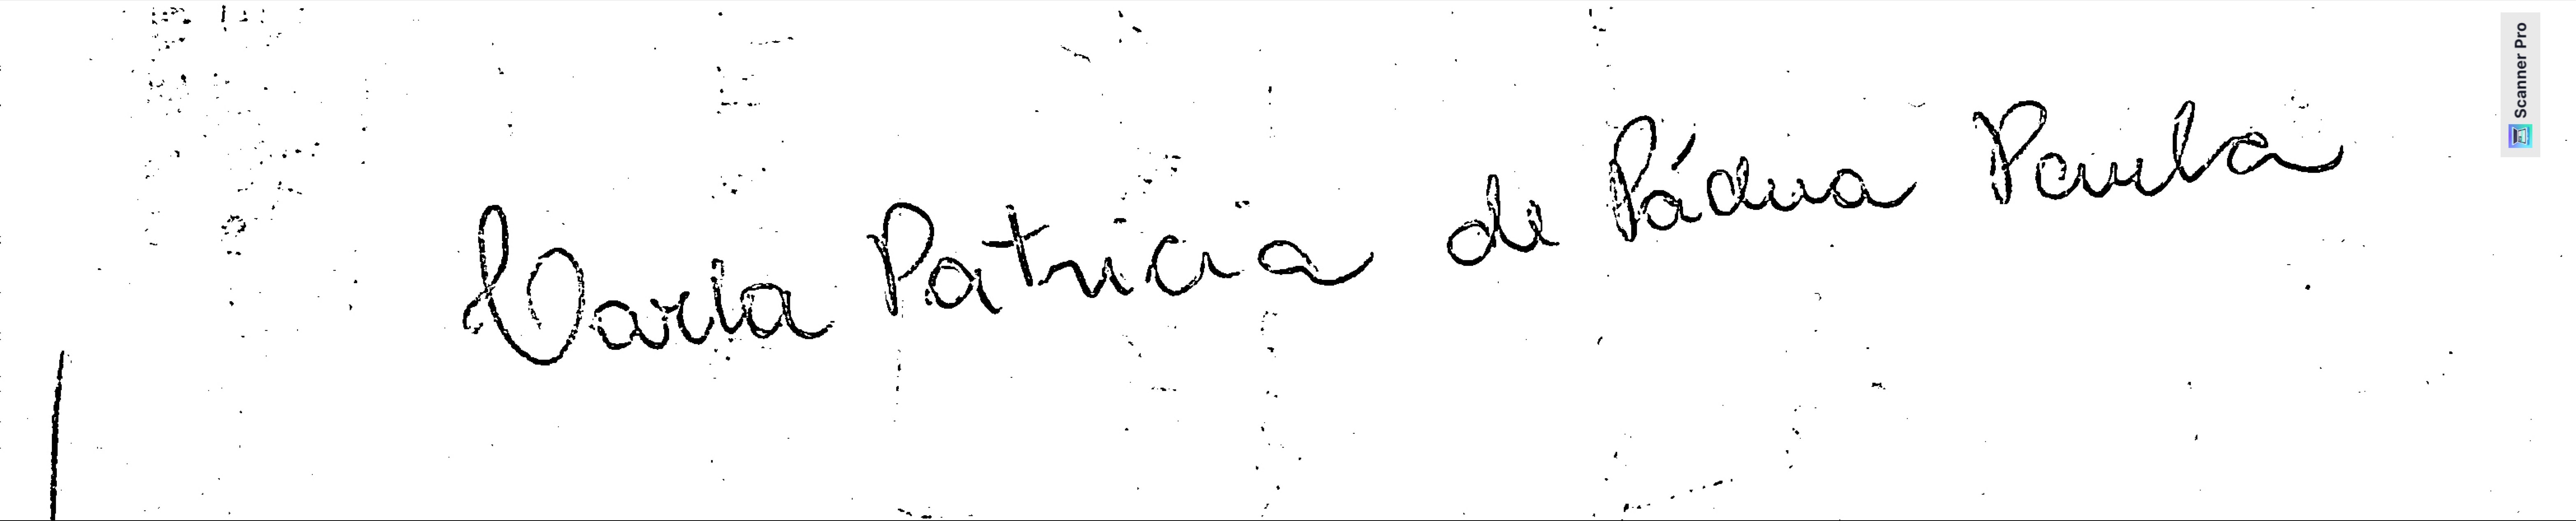 Carla Patricia de Pádua Paula
Scanner Pro